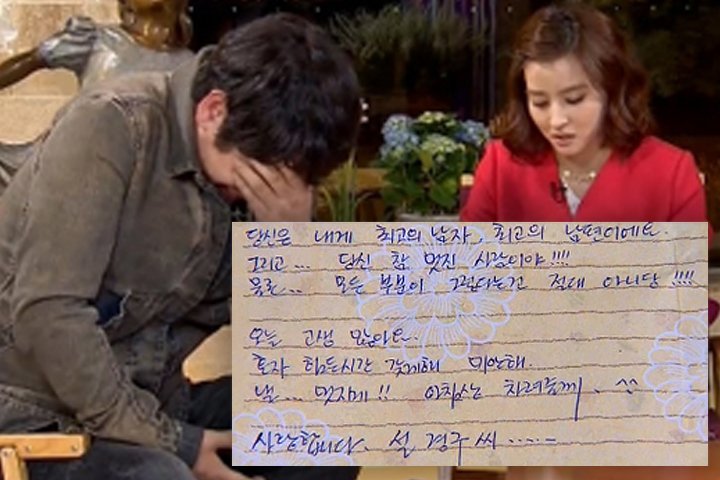 당신은 내게 최고의 남자, 최고의 남편이에요.
그리고... 당신 참 멋진 사람이야!!!!
물론.. 모든 부분이 그렇다는건 절대 아니당 !!!!
오늘 고생 많아요.
혼자 힘든시간 갖게해 미안해.
낼... 멋지게!! 아침상 차려줄께. ^^
사랑합니다. 설 경구 씨.....